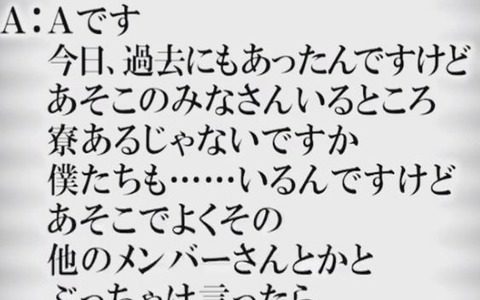 A：Aです
今日、過去にもあったんですけど
あそこのみなさんいるところ
寮あるじゃないですか
僕たちも……いるんですけど
あそこでよくその
他のメンバーさんとかと
ぶっちゃけ言ったら